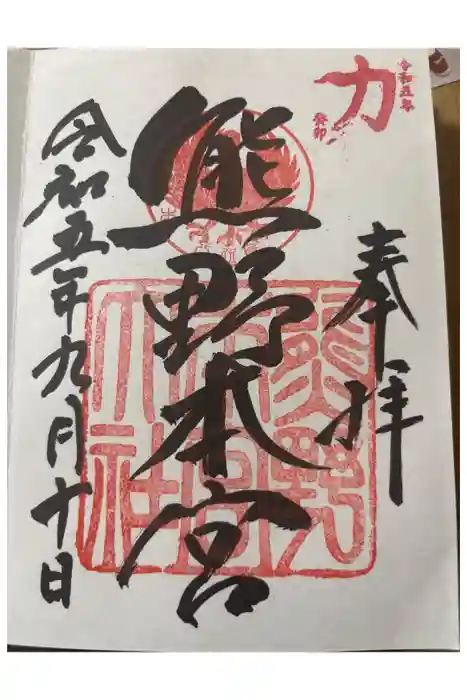 令和五年
癸卯
力
奉拝
熊野本宮
熊野
本宮
大社
令和五年九月十日